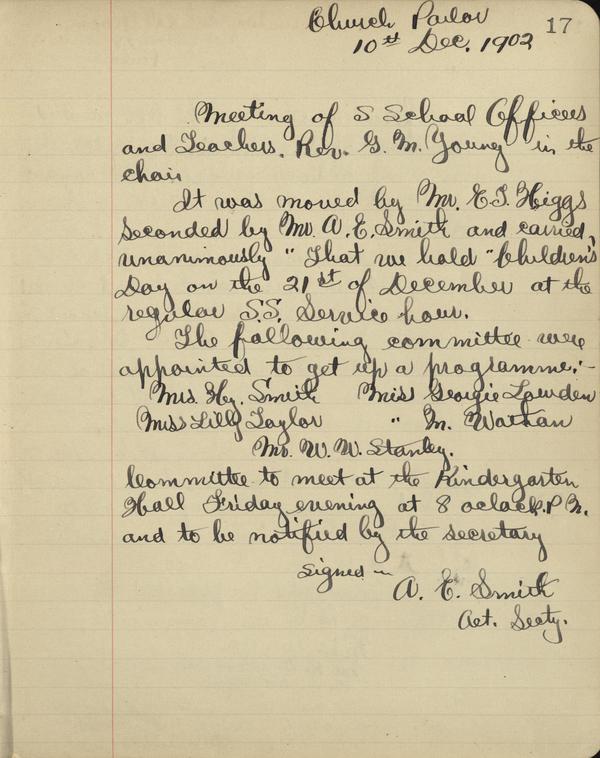 Church Parlor
17
10th Dec. 1902
Meeting of S School Officers
and Teachers. Rev. G. M. Young in the
chair
It was moved by Mr. E. J. Higgs
seconded by Mr. A. E. Smith and carried,
unanimously " That we hold "Children's
Day on the 21st of December at the
regular S.S. Service hour.
The following committee were
appointed to get up a programme.:-
Mrs. Hy. Smith Miss Georgie Lowden
Miss Lilly Taylor " M. Wathan
Mr. W. W. Stanley.
Committee to meet at the Kindergarten
Hall Friday evening at 8 oclock P.M.
and to be notified by the secretary
signed —
A. E. Smith
Act. Secty.